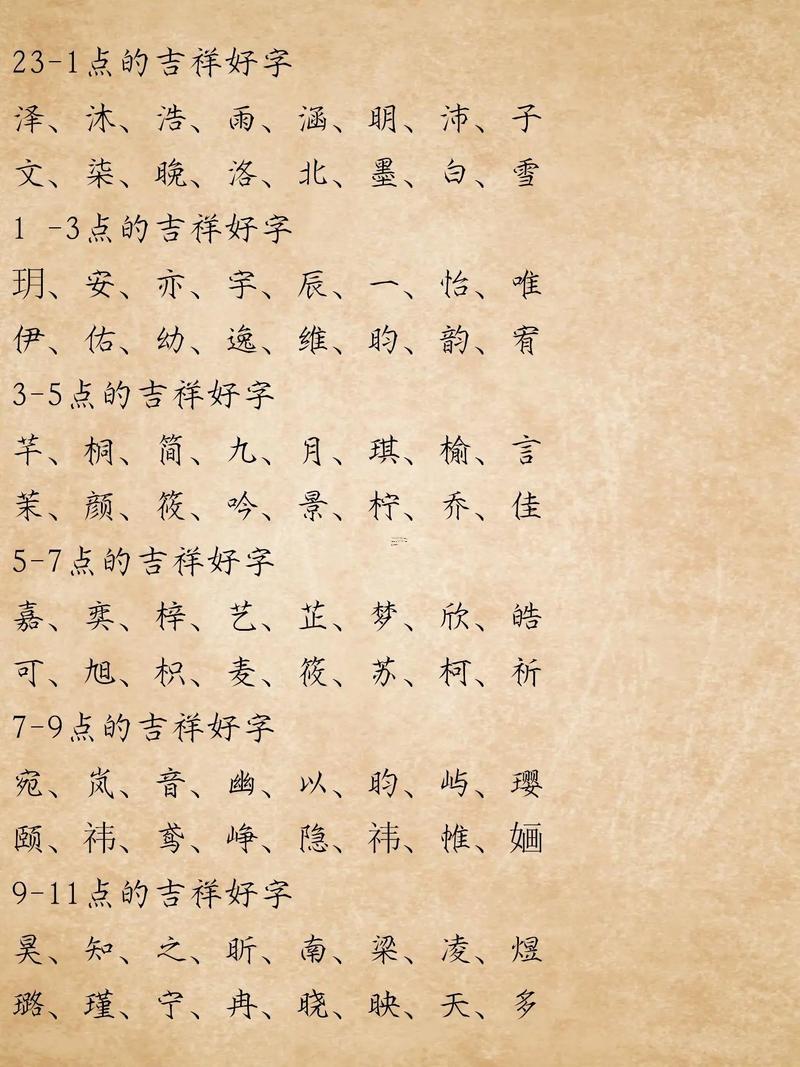 23-1点的吉祥好字
泽、沐、浩、雨、涵、明、沛、子
文、柒、晚、洛、北、墨、白、雪
1 -3点的吉祥好字
玥、安、亦、宇、辰、一、怡、唯
伊、佑、幼、逸、维、昀、韵、宥
3-5点的吉祥好字
芊、桐、简、九、月、琪、榆、言
茉、颜、筱、吟、景、柠、乔、佳
5-7点的吉祥好字
嘉、奕、梓、艺、芷、梦、欣、皓
可、旭、枳、麦、筱、苏、柯、祈
7-9点的吉祥好字
宛、岚、音、幽、以、昀、屿、璎
颐、祎、鸢、峥、隐、祎、惟、婳
9-11点的吉祥好字
昊、知、之、昕、南、梁、凌、煜
璐、瑾、宁、冉、晓、映、天、多